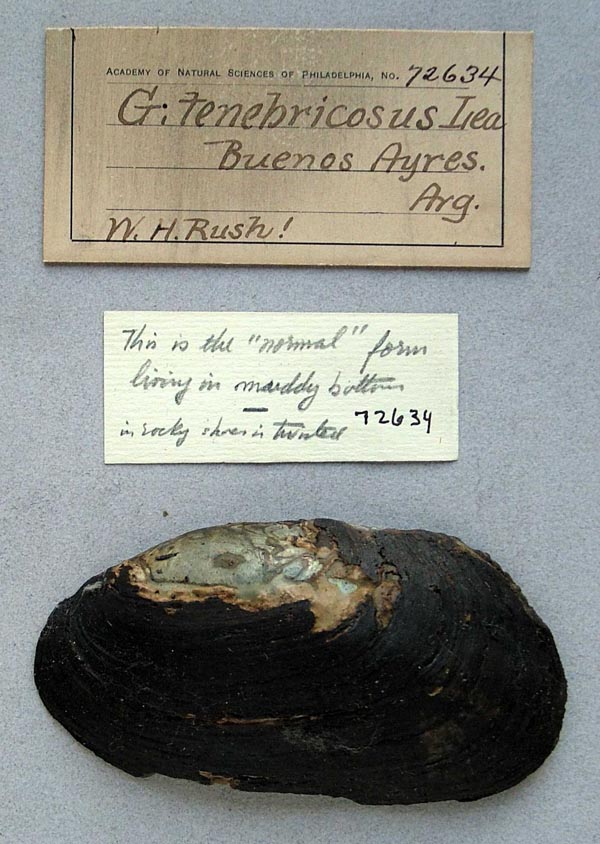 ACADEMY OF NATURAL SCIENCES OF PHILADELPHIA, NO. 72634
G: tenebricosus Lea
Buenos Ayres.
Arg.
W. H. Rush!
This is the "normal" form
living in muddy bottom
in rocky shores is twisted 72634